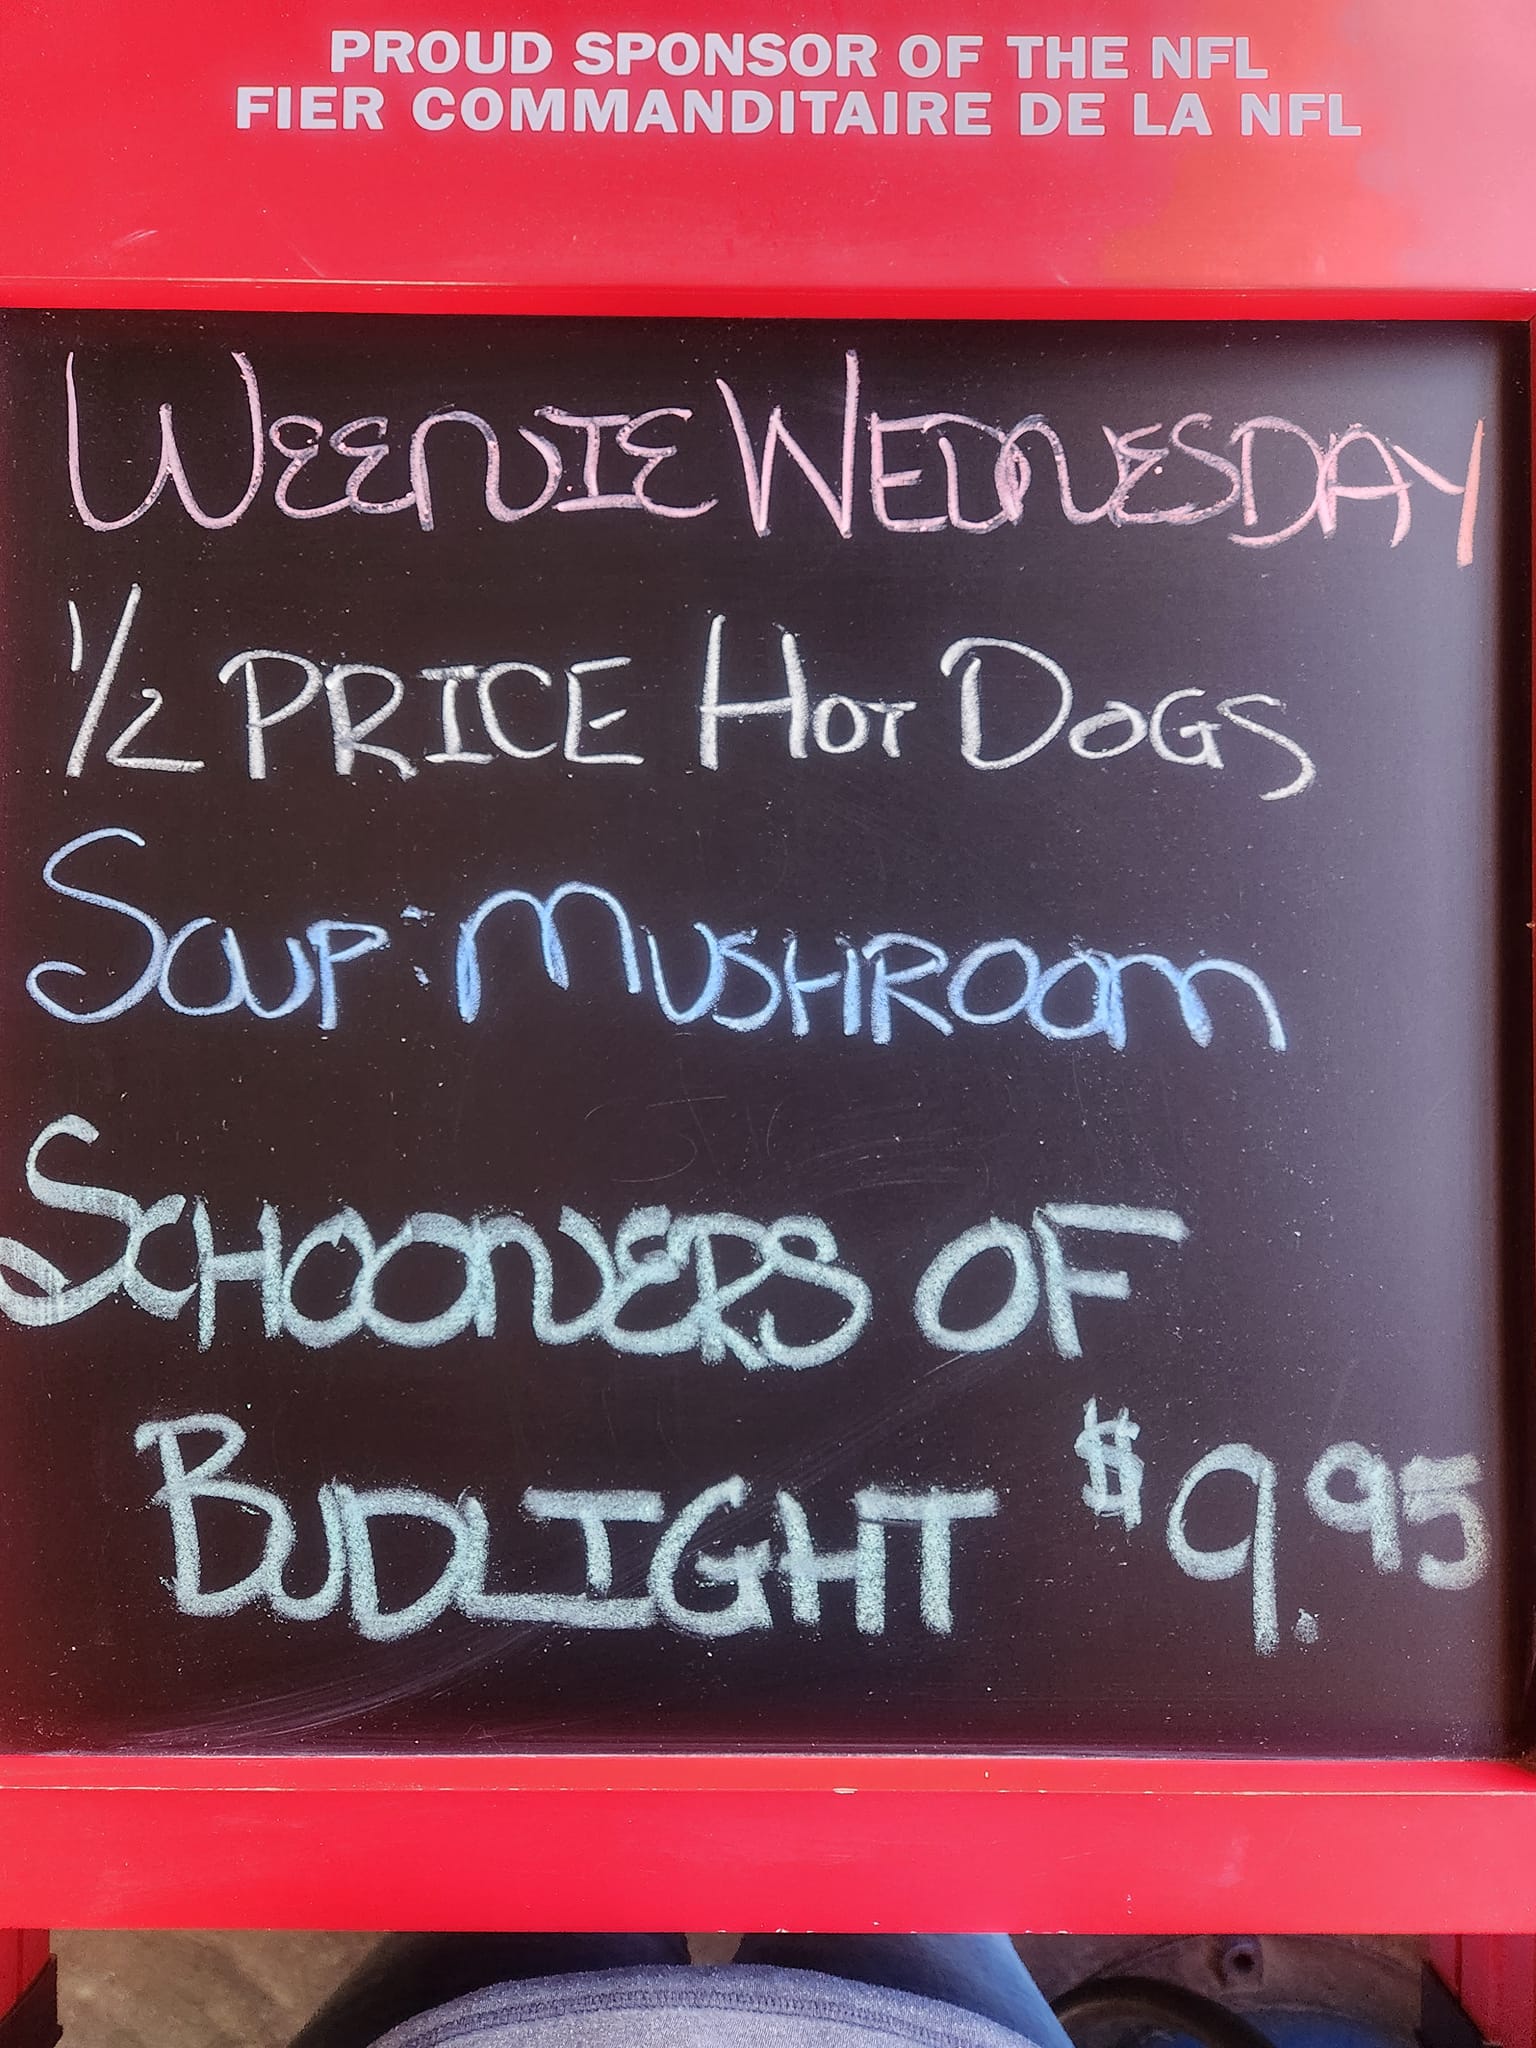 PROUD SPONSOR OF THE NFL
FIER COMMANDITAIRE DE LA NFL
WEENIE WEDNESDAY
1/2 PRICE HOT DOGS
SOUP: MUSHROOM
SCHOONERS OF
BUDLIGHT $9.95